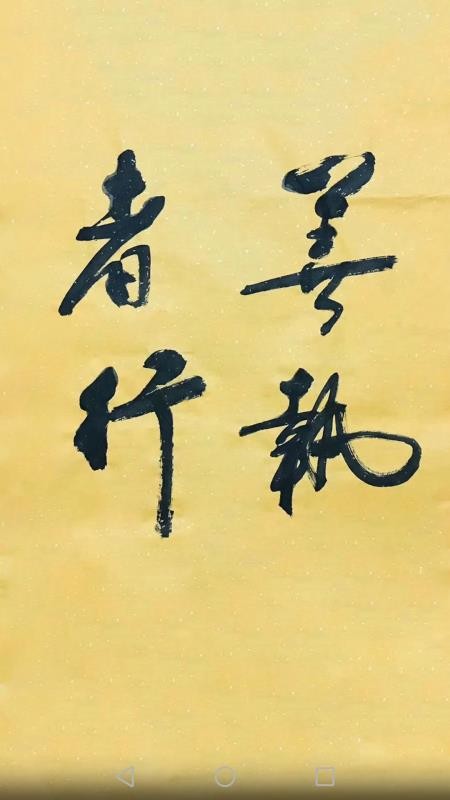 善執
者行